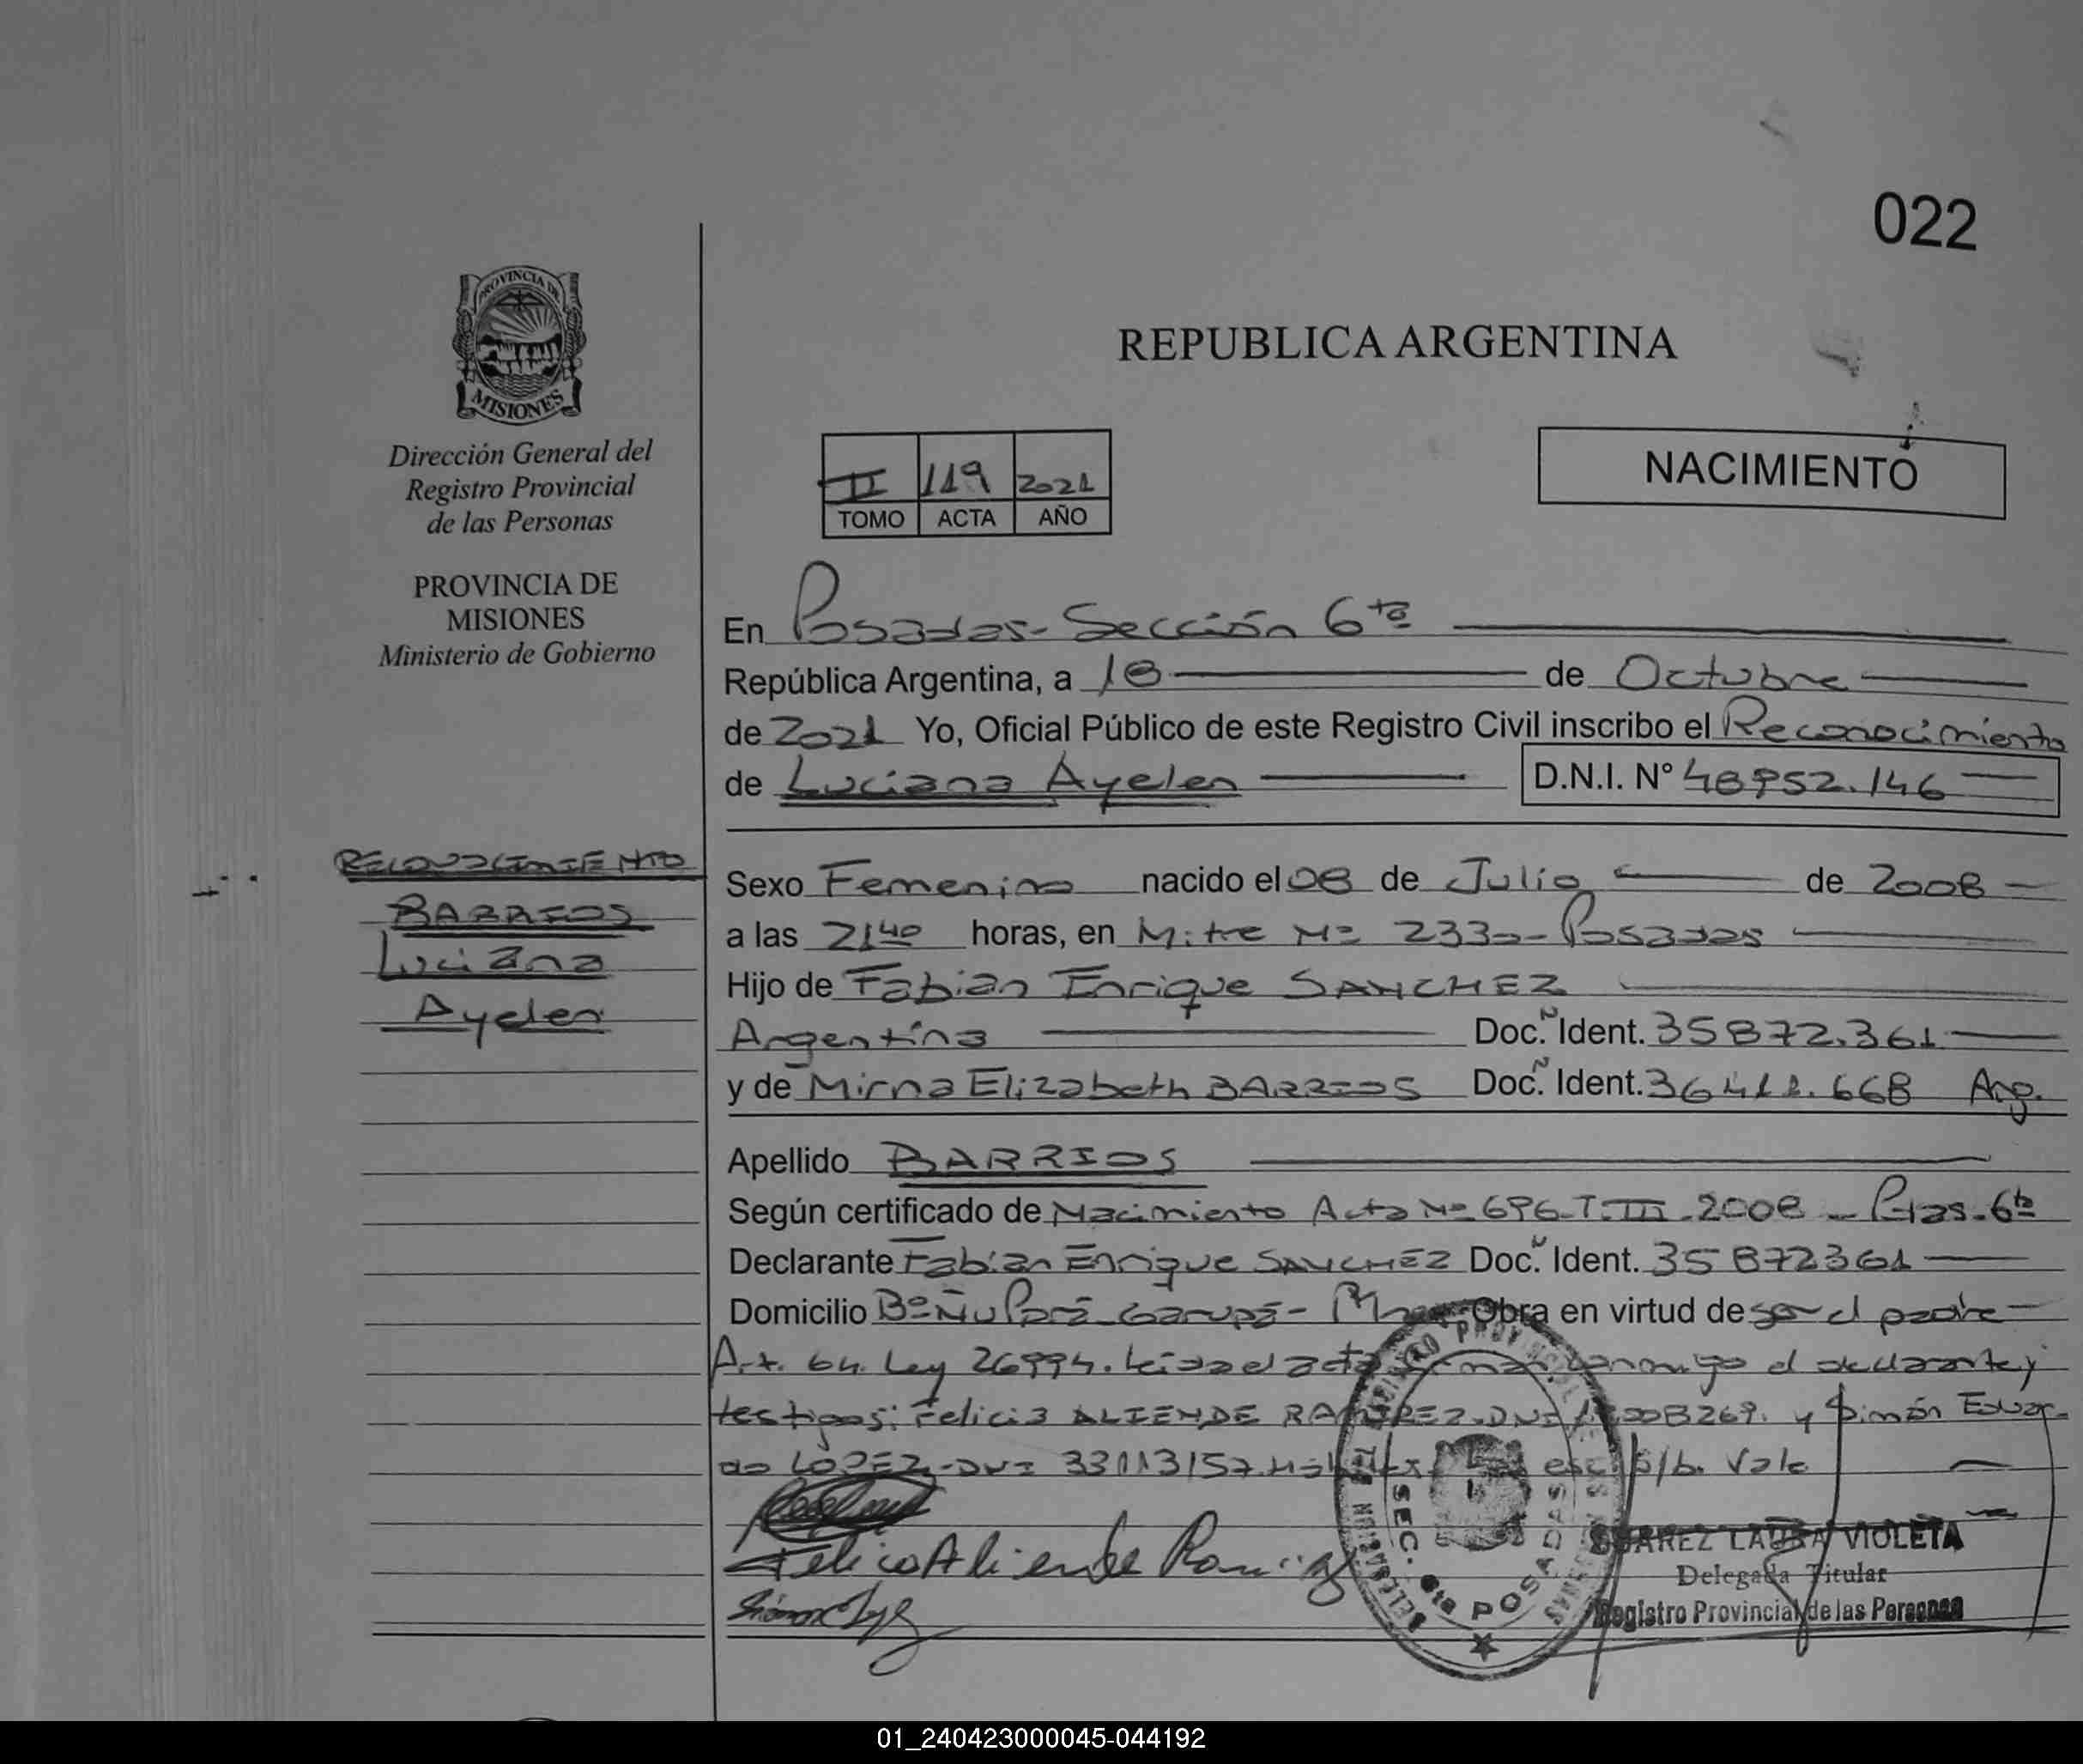 022
PROVINCIA DE
MISIONES
Dirección General del
Registro Provincial
de las Personas
PROVINCIA DE
MISIONES
Ministerio de Gobierno
REPUBLICA ARGENTINA
II 119 2021
TOMO ACTA AÑO
NACIMIENTO
En Posadas- Sección 6ta
República Argentina, a 18 de Octubre
de 2021 Yo, Oficial Público de este Registro Civil inscribo el Reconocimiento
de Luciana Ayelen D.N.I. N° 48952.146
RECONOCIMIENTO
BARRIOS
Luciana
Ayelen
Sexo Femenino nacido el 08 de Julio de 2008
a las 21 40 horas, en Mitre Nº 2330- Posadas
Hijo de Fabian Enrique SANCHEZ
Argentina Doc. N Ident. 35872.361
y de Mirna Elizabeth BARRIOS Doc. N Ident. 36411.668 Arg.
Apellido BARRIOS
Según certificado de Nacimiento Acta Nº 696-T:III-2008 - Pdas-6ta
Declarante Fabian Enrique SANCHEZ Doc. N Ident. 35872361
Domicilio Bº Ñu Porá-Garupá- Obra en virtud de ser el padre
Art. 64. Ley 26994. Leida el acta conmigo el declarante y
testigos: Felicia ALIENDE RAMIREZ-DNI y Simón Eduar-
do LOPEZ-DNI 33113157. s/b. Vale
Felicia Aliende Ramirez
SUAREZ LAURA VIOLETA
Delegada Titular
Registro Provincial de las Personas
SEC. 6ta POSADAS
01_240423000045-044192